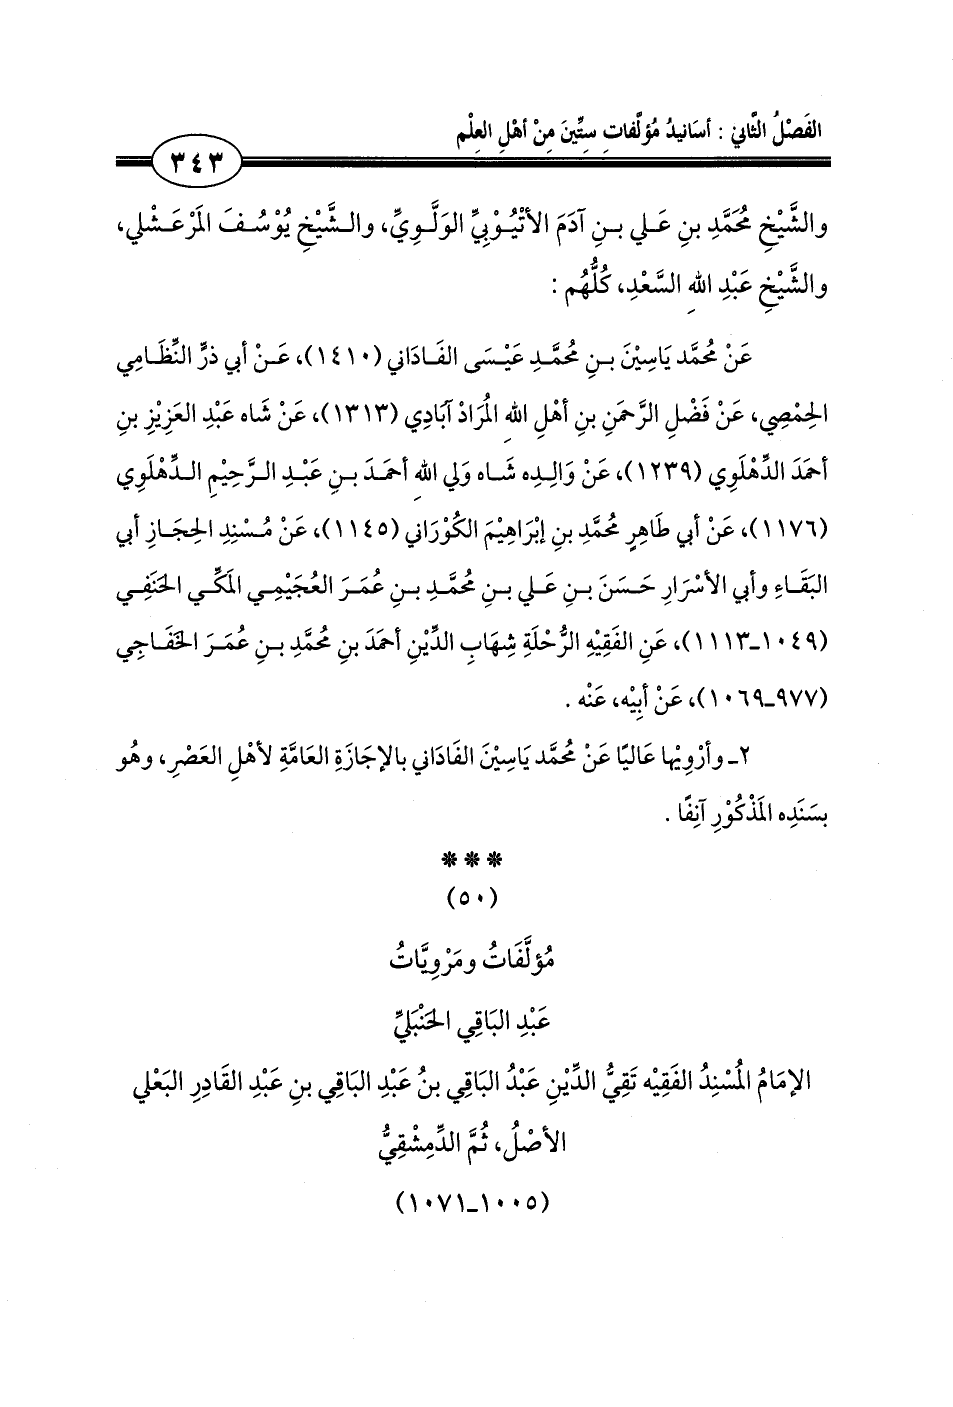 الفَصْلُ الثَّاني : أسَانيدُ مُؤلَّفاتِ سِتِّينَ مِنْ أهْلِ العِلْم
٣٤٣
والشَّيْخِ مُحَمَّدِ بنِ عَلي بنِ آدَمَ الأتْيُوْبِيِّ الوَلَّوِيِّ، والشَّيْخِ يُوْسُفَ المَرْعَشْلي،
والشَّيْخِ عَبْدِ اللهِ السَّعْدِ، كُلُّهُم :
عَنْ مُحمَّد يَاسِيْنَ بنِ مُحمَّدِ عِيْسَى الفَادَاني (١٤١٠)، عَنْ أبي ذرٍّ النِّظَامِي
الحِمْصِي، عَنْ فَضْلِ الرَّحمَنِ بنِ أهْلِ اللهِ المُرَادْ آبَادِي (١٣١٣)، عَنْ شَاه عَبْدِ العَزِيْزِ بنِ
أحمَدَ الدِّهْلَوِي (١٢٣٩)، عَنْ وَالِدِه شَاه وَلي اللهِ أحمَدَ بنِ عَبْدِ الرَّحِيْمِ الدِّهْلَوِي
(١١٧٦)، عَنْ أبي طَاهِرٍ مُحمَّدِ بنِ إبْرَاهِيْمَ الكُوْرَاني (١١٤٥)، عَنْ مُسْنِدِ الحِجَازِ أبي
البَقَاءِ وأبي الأسْرَارِ حَسَنَ بنِ عَلي بنِ مُحمَّدِ بنِ عُمَرَ العُجَيْمِي المَكِّي الحَنَفِي
(١٠٤٩ـ١١١٣)، عَنِ الفَقِيْهِ الرُّحْلَةِ شِهَابِ الدِّيْنِ أحمَدَ بنِ مُحمَّدِ بنِ عُمَرَ الخَفَاجِي
(٩٧٧ـ١٠٦٩)، عَنْ أبِيْه، عَنْه .
٢ـ وأرْوِيْها عَاليًا عَنْ مُحمَّد يَاسِيْنَ الفَادَاني بالإجَازَةِ العَامَّةِ لأهْلِ العَصْرِ، وهُو
بسَنَدِه المَذْكُوْرِ آنِفًا .
***
(٥٠)
مُؤلَّفَاتُ ومَرْوِيَّاتُ
عَبْدِ البَاقِي الحَنْبَليِّ
الإمَامُ المُسْنِدُ الفَقِيْه تَقِيُّ الدِّيْنِ عَبْدُ البَاقِي بنُ عَبْدِ البَاقِي بنِ عَبْدِ القَادِرِ البَعْلي
الأصْلُ، ثُمَّ الدِّمِشْقِيُّ
(١٠٠٥ـ١٠٧١)